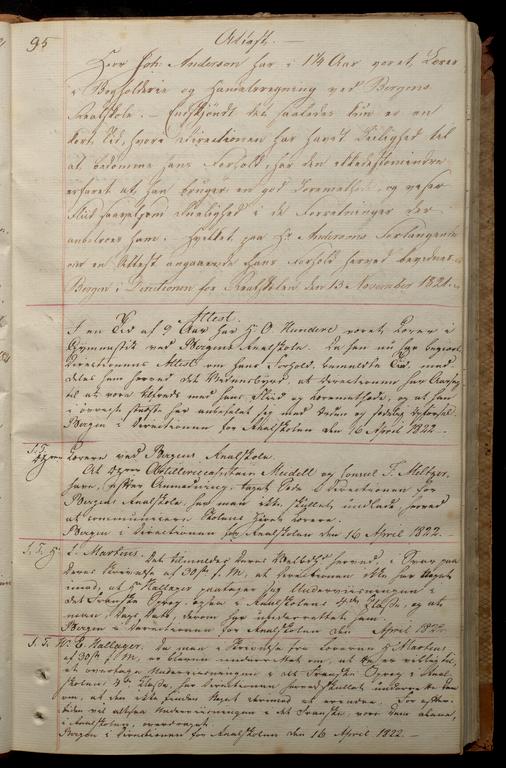 95
Attest. —
Herr Joh. Anderson har i 1¼ Aar været Lærer
i Bogholderie og Handelsregning ved Bergens
Realskole. — Endskjøndt det saaledes kun er en
kort Tid, hvori Directionen har havt Leilighed til
at bedømme hans Forhold, har den ikke destomindre
erfaret at han bruger en god Læremethode, og viser
Fliid saavelsom Duelighed i de Forretninger der
anbetroes ham. Hvilket paa Hr Andersons Forlangende
om en Attest angaaende hans Forhold herved bevidnes.
Bergen i Directionen for Realskolen den 13 November 1821. —
Attest.
I en Tid af 2 Aar har H. O. Hundere været Lærer i
Gymnastik ved Bergens Realskole. Da han nu har begjært
Directionens Attest om hans Forhold i bemeldte Tid, med-
deles ham herved det Vidnesbyrd, at Directionen har Aarsag
til at være tilfreds med hans Fliid og Læremethode, og at han
i øvrigt stedse har anbefalet sig med Orden og sædelig Opførsel.
Bergen i Directionen for Realskolen den 16 April 1822. —
S. T.
Lærere ved Bergens Realskole.
At Herrer Artillericapitain Meidell og Consul F. Meltzer,
have, efter Anmodning, taget Sæde i Directionen for
Bergens Realskole, har man ikke skullet undlade herved
at communicere Skolens Herrer Lærere.
Bergen i Directionen for Realskolen den 16 April 1822. —
S. T. H. S. Martens.
Det tilmeldes Deres Velbyrdighed herved, i Svar paa
Deres Skrivelse af 30te f. M., at Directionen ikke har noget
imod, at H. Hallager paatager sig Underviisningen i
det Franske Sprog også i Realskolens 4de Classe, og at
man Dags Dato derom har underrettet ham.
Bergen i Directionen for Realskolen den April 1822.
S. T. W. E. Hallager. Da man i Skrivelse fra Læreren H. Martens
af 30te f. M. er bleven underrettet om, at De er villig til,
at overtage Underviisningen i det Franske Sprog i Real-
skolens 4de Classe, har Directionen herved skullet underrette Dem
om, at den ikke finder noget derimod at erindre. For Efter-
tiden vil altsaa Underviisningen i det Franske, være Dem alene,
i Realskolen, overdraget.
Bergen i Directionen for Realskolen den 16 April 1822. —